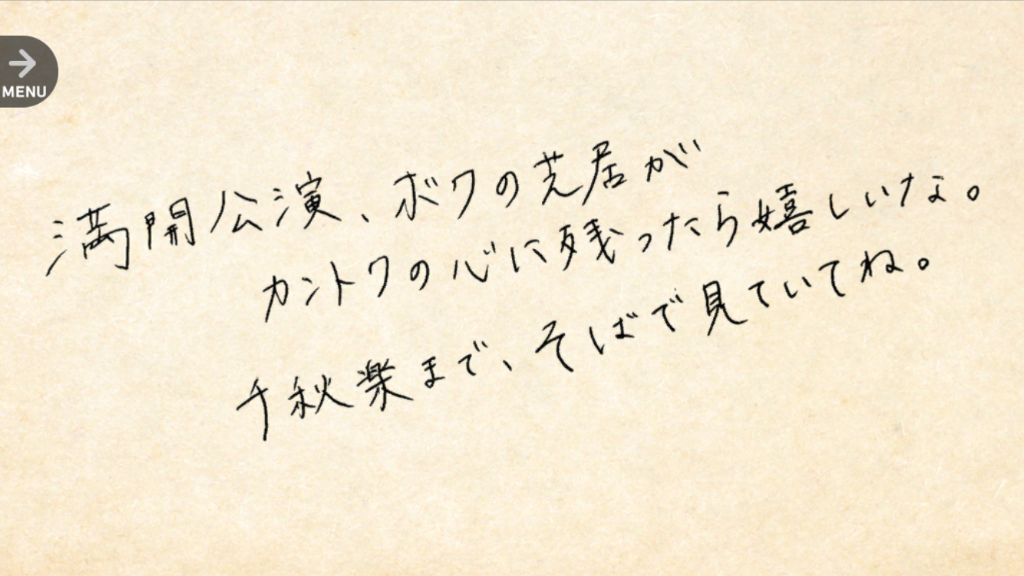 MENU
満開公演、ボクの芝居が
カントクの心に残ったら嬉しいな。
千秋楽まで、そばで見ていてね。